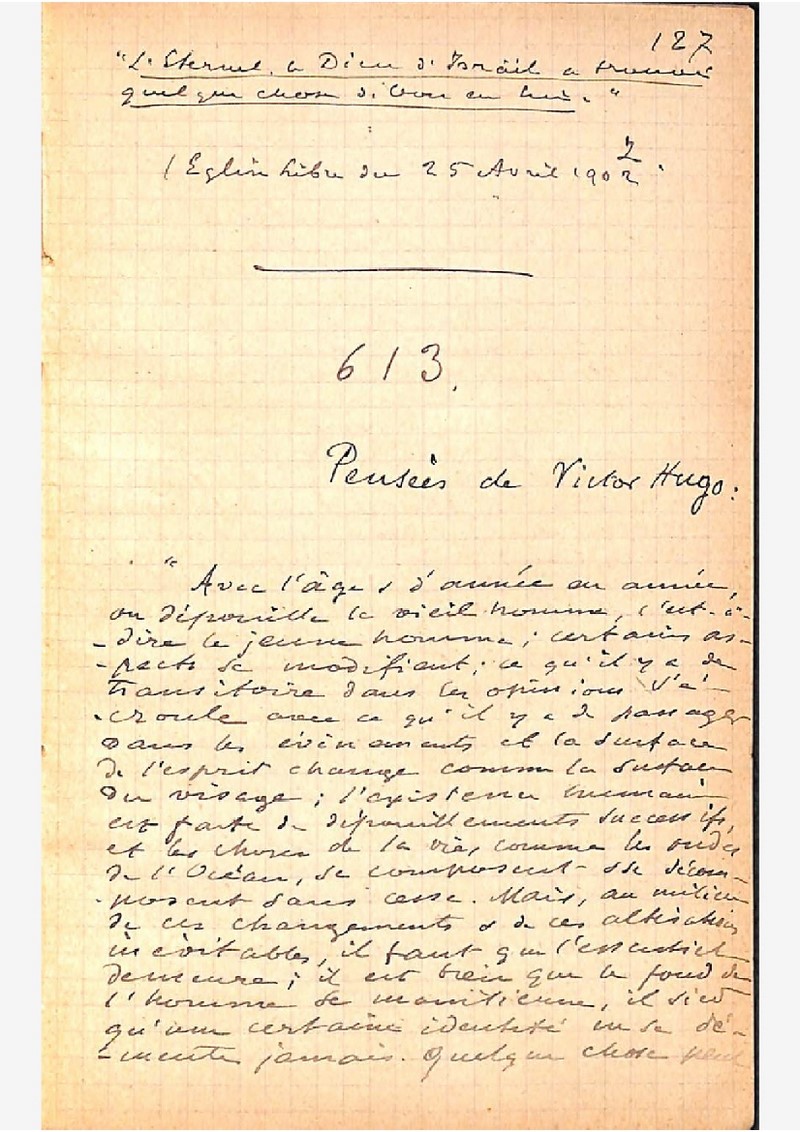 127
"L'Eternel, le Dieu d'Israël a trouvé
quelque chose de bon en lui."
(Eglise libre du 25 Avril 1902
2
613.
Pensées de Victor Hugo:
" Avec l'âge & d'année en année,
on dépouille le vieil homme, c'est-à-
-dire le jeune homme; certains as-
-pects se modifient; ce qu'il y a de
transitoire dans les opinions s'é-
-croule avec ce qu'il y a de passager
dans les événements et la surface
de l'esprit change comme la surface
du visage; l'existence humaine
est faite de dépouillements successifs,
et les choses de la vie, comme les ondes
de l'Océan, se composent & se décom-
-posent sans cesse. Mais, au milieu
de ces changements & de ces altérations
inévitables, il faut que l'essentiel
demeure; il est bien que le fond de
l'homme se maintienne, il sied
qu'une certaine identité ne se dé-
-mente jamais. Quelque chose peut